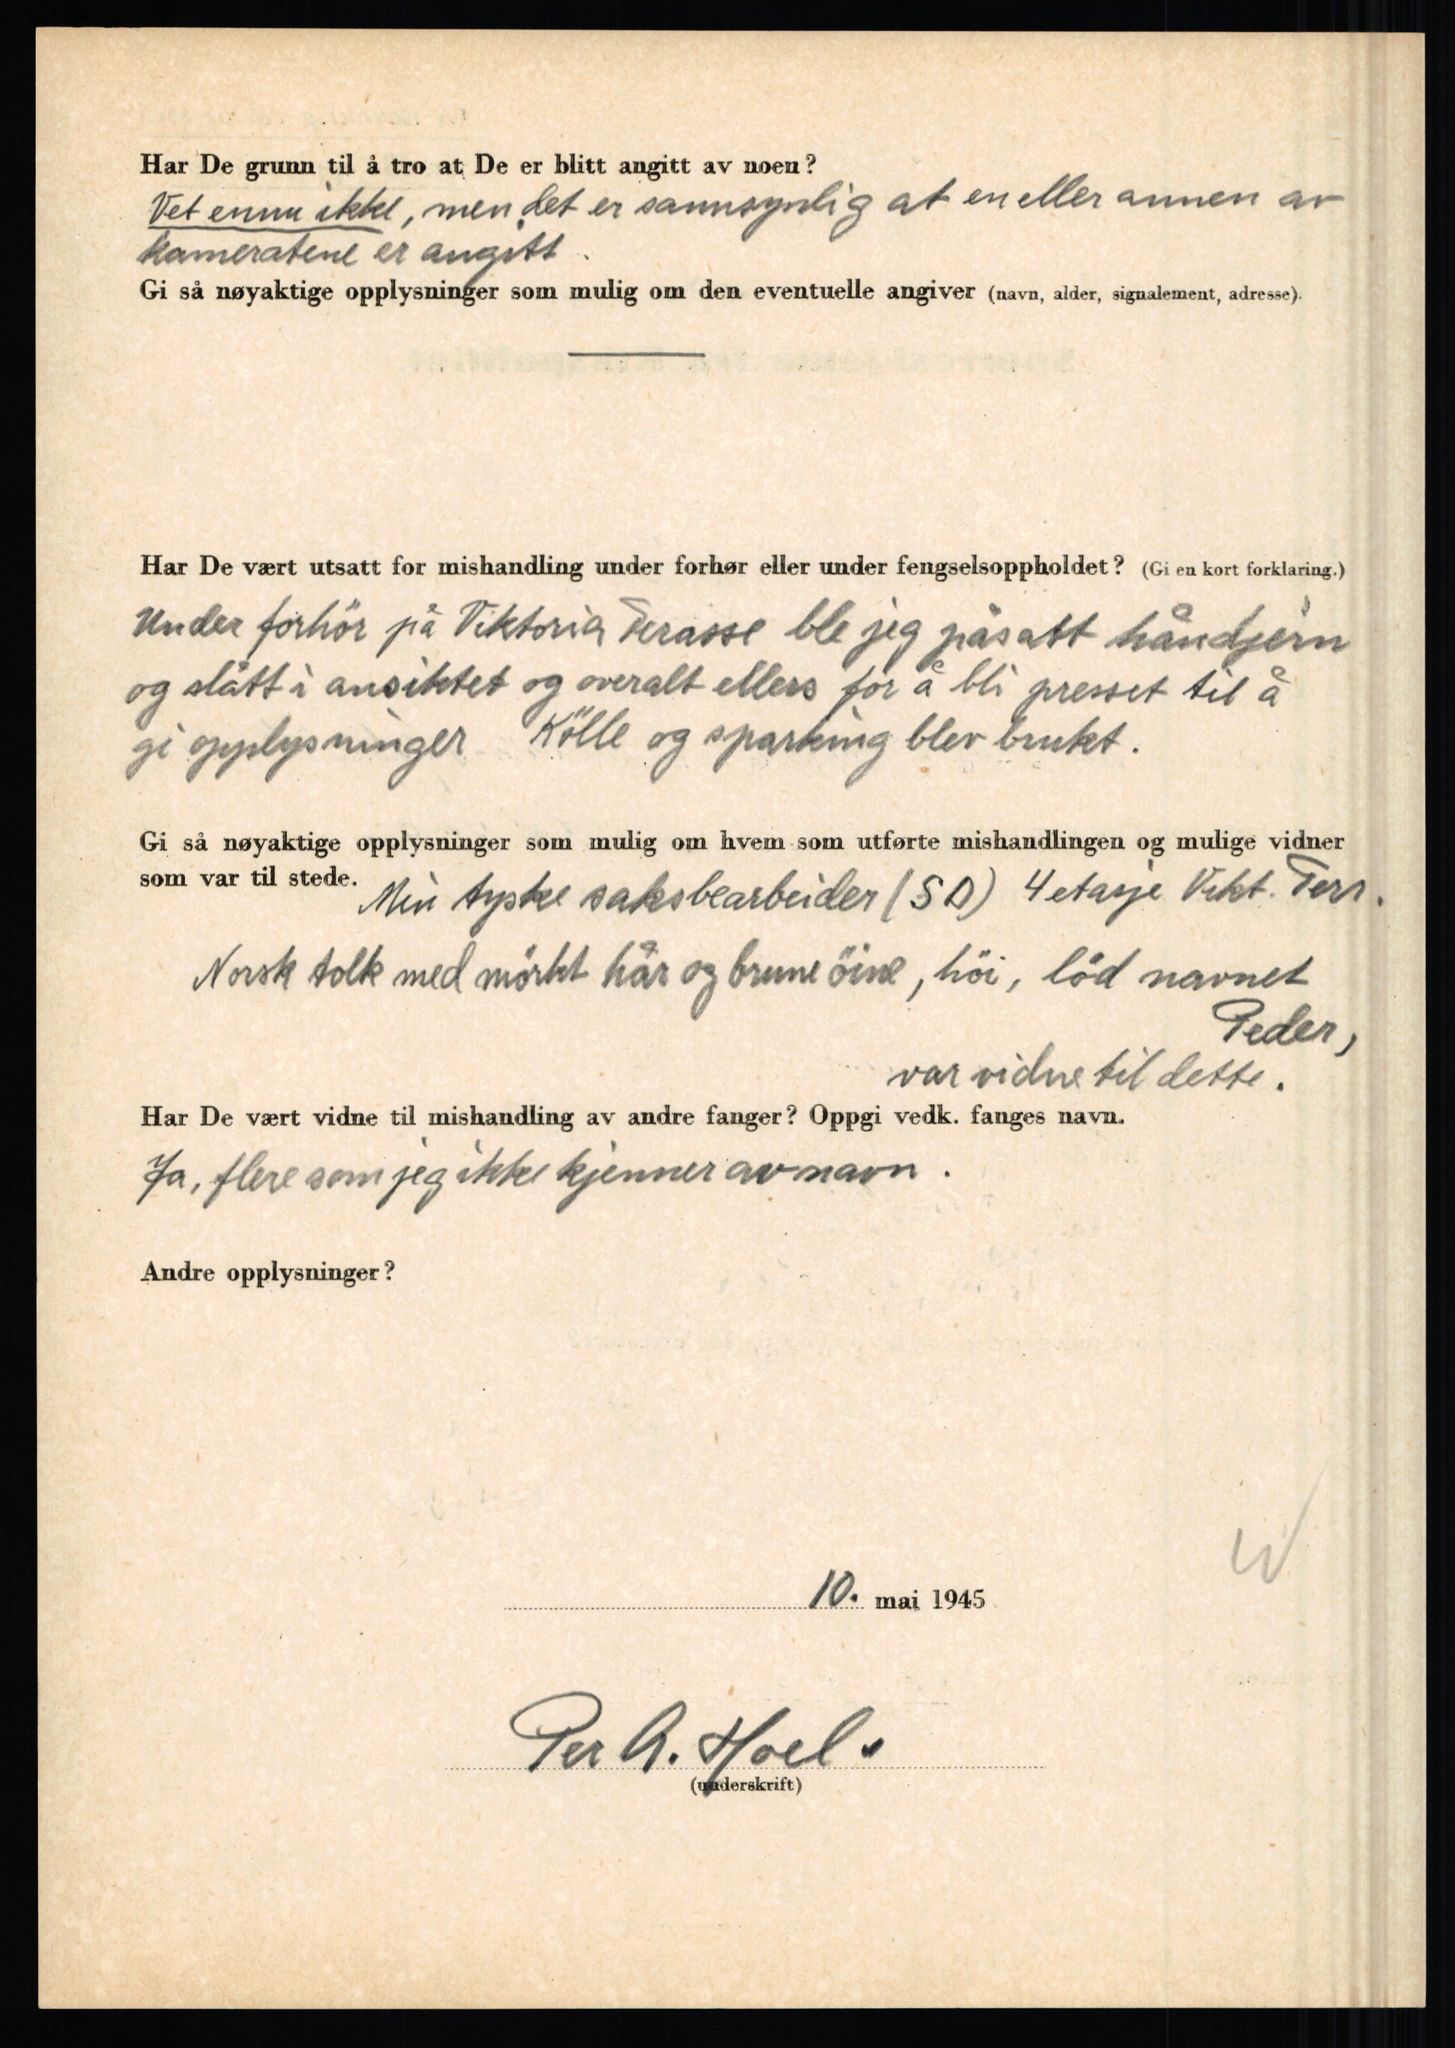 Har De grunn til å tro at De er blitt angitt av noen?
Vet ennu ikke, men det er sannsynlig at en eller annen av
kameratene er angitt.
Gi så nøyaktige opplysninger som mulig om den eventuelle angiver (navn, alder, signalement, adresse).
Har De vært utsatt for mishandling under forhør eller under fengselsoppholdet? (Gi en kort forklaring.)
Under forhör på Viktoria Terasse ble jeg påsatt håndjern
og slått i ansiktet og overalt ellers for å bli presset til å
gi opplysninger Kölle og sparking blev brukt.
Gi så nøyaktige opplysninger som mulig om hvem som utførte mishandlingen og mulige vidner
som var til stede. Min tyske saksbearbeider (SD) 4 etasje Vikt. Terr.
Norsk tolk med mörkt hår og brune öine, höi, löd navnet
Peder,
var vidne til dette.
Har De vært vidne til mishandling av andre fanger? Oppgi vedk. fanges navn.
Ja, flere som jeg ikke kjenner av navn.
Andre opplysninger?
W
10. mai 1945
Per A. Hoel.
(underskrift)